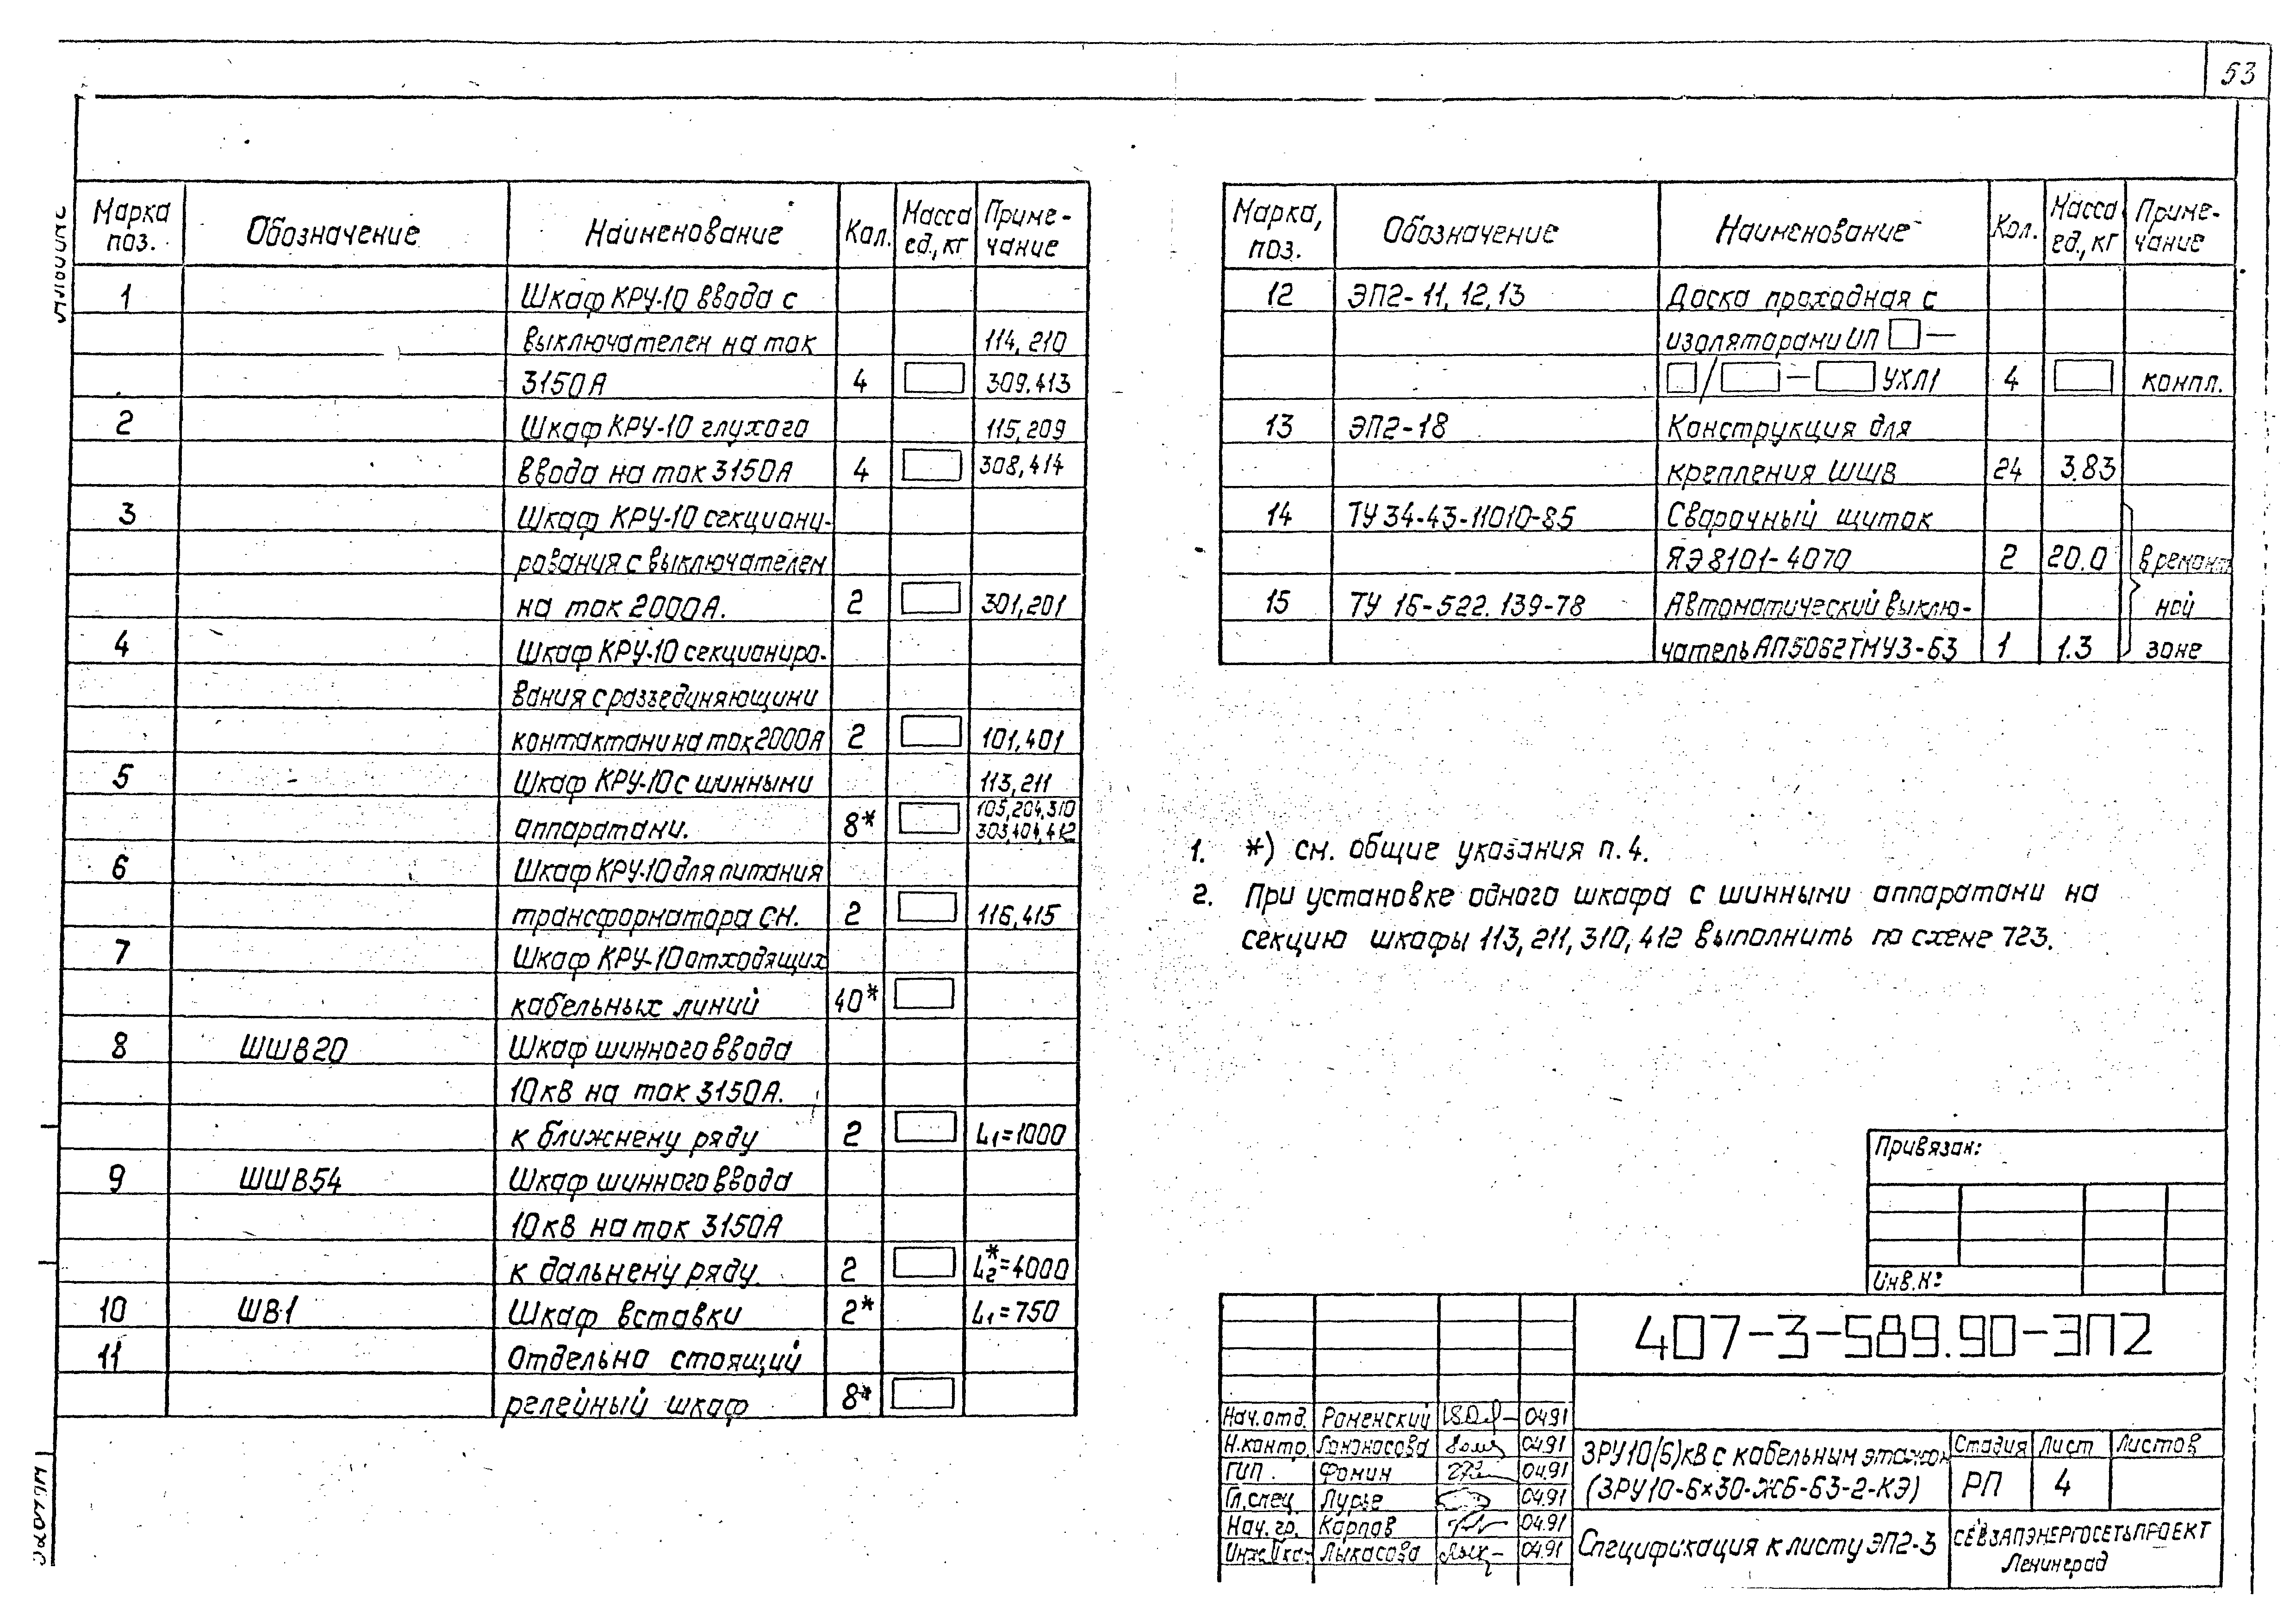 53
Марка поз.
Обозначение
Наименование
Кол.
Масса ед., кг
Приме-чание
1 Шкаф КРУ-10 ввода с
выключателем на ток 114, 210
3150А 4 309, 413
2 Шкаф КРУ-10 глухого 115, 209
ввода на ток 3150А 4 308, 414
3 Шкаф КРУ-10 секциони-
рования с выключателем
на ток 2000А. 2 301, 201
4 Шкаф КРУ-10 секциониро-
вания с разъединяющими
контактами на ток 2000А 2 101, 401
5 Шкаф КРУ-10 с шинными 113, 211
аппаратами. 8* 105, 204, 310
303, 404, 412
6 Шкаф КРУ-10 для питания
трансформатора СН. 2 116, 415
7 Шкаф КРУ-10 отходящих
кабельных линий 40*
8 ШШВ20 Шкаф шинного ввода
10кВ на ток 3150А.
к ближнему ряду 2 L1=1000
9 ШШВ54 Шкаф шинного ввода
10кВ на ток 3150А
к дальнему ряду. 2 L2*=4000
10 ШВ1 Шкаф вставки 2* L1=750
11 Отдельно стоящий
релейный шкаф 8*
Марка, поз.
Обозначение
Наименование
Кол.
Масса ед., кг
Приме-чание
12 ЭП2-11, 12, 13 Доска проходная с
изоляторами ИП □ —
□/□—□ УХЛ1 4 компл.
13 ЭП2-18 Конструкция для
крепления ШШВ 24 3.83
14 ТУ 34-43-11010-85 Сварочный щиток
ЯЭ8101-4070 2 20.0 в ремонт-
15 ТУ 16-522.139-78 Автоматический выклю- ной
чатель АП5062ТМУ3-63 1 1.3 зоне
1. *) см. общие указания п.4.
2. При установке одного шкафа с шинными аппаратами на
секцию шкафы 113, 211, 310, 412 выполнить по схеме 723.
Привязан:
Инв.№
407-3-589.90-ЭП2
Нач.отд. Роменский 04.91
Н.контр. 04.91
ГИП. Фомин 04.91
Гл.спец Лурье 04.91
Нач. гр. Карпов 04.91
Лыкасова 04.91
ЗРУ10(6)кВ с кабельным этажом
(ЗРУ10-6×30-ЖБ-63-2-КЭ)
Стадия Лист Листов
РП 4
Спецификация к листу ЭП2-3
СЕВЗАПЭНЕРГОСЕТЬПРОЕКТ
Ленинград